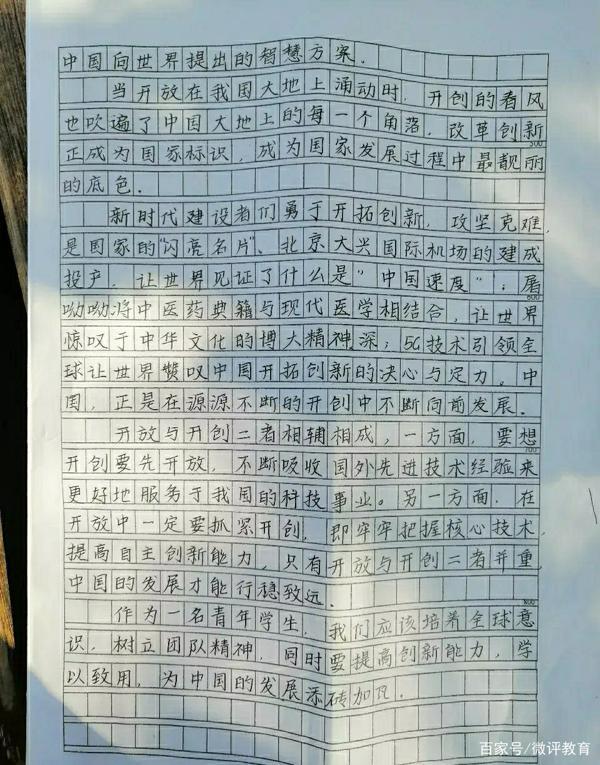 中国向世界提出的智慧方案.
当开放在我国大地上涌动时, 开创的春风
也吹遍了中国大地上的每一个角落, 改革创新
500
正成为国家标识, 成为国家发展过程中最靓丽
的底色.
新时代建设者们勇于开拓创新, 攻坚克难,
是国家的"闪亮名片"、北京大兴国际机场的建成
投产, 让世界见证了什么是"中国速度"; 屠
600
呦呦将中医药典籍与现代医学相结合, 让世界
惊叹于中华文化的博大精神深; 5G技术引领全
球让世界赞叹中国开拓创新的决心与定力. 中
国, 正是在源源不断的开创中不断向前发展.
开放与开创二者相辅相成, 一方面, 要想
700
开创要先开放, 不断吸收国外先进技术经验来
更好地服务于我国的科技事业. 另一方面, 在
开放中一定要抓紧开创, 即牢牢把握核心技术,
提高自主创新能力, 只有开放与开创二者并重,
中国的发展才能行稳致远.
800
作为一名青年学生, 我们应该培养全球意
识, 树立团队精神, 同时要提高创新能力, 学
以致用, 为中国的发展添砖加瓦.
百家号/微评教育